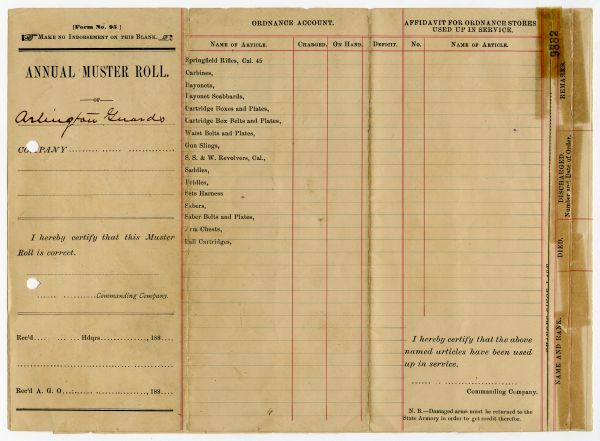 [Form No. 95]
Make no Indorsement on this Blank.
ANNUAL MUSTER ROLL.
—OF—
Arlington Guards
COMPANY
I hereby certify that this Muster
Roll is correct.
Commanding Company.
Rec'd Hdqrs. ,188
Rec'd A. G. O ,188
ORDNANCE ACCOUNT.
Name of Article. Charged. On Hand. Deficit.
Springfield Rifles, Cal. 45
Carbines,
Bayonets,
Bayonet Scabbards,
Cartridge Boxes and Plates,
Cartridge Box Belts and Plates,
Waist Belts and Plates,
Gun Slings,
S. S. & W. Revolvers, Cal.,
Saddles,
Bridles,
Sets Harness
Sabers,
Saber Belts and Plates,
Arm Chests,
Ball Cartridges,
AFFIDAVIT FOR ORDNANCE STORES
USED UP IN SERVICE.
No. Name of Article.
I hereby certify that the above
named articles have been used
up in service.
Commanding Company.
N. B.—Damaged arms must be returned to the
State Armory in order to get credit therefor.
9882
REMARKS.
DISCHARGED.
Number and Date of Order.
DIED.
NAME AND RANK.